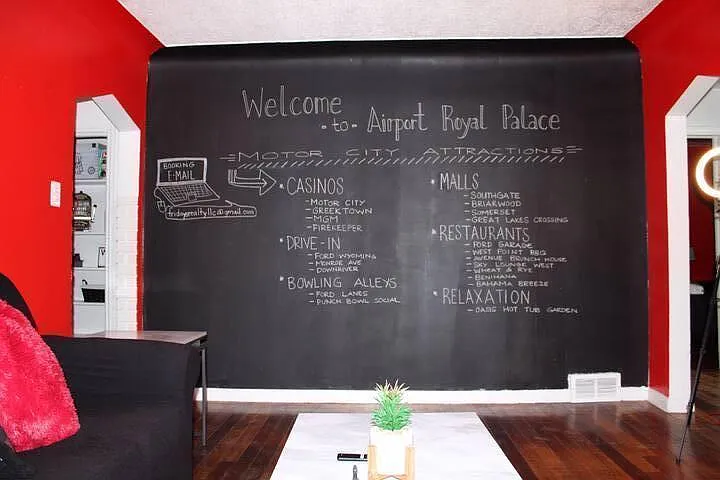 Welcome
- to - Airport Royal Palace
MOTOR CITY ATTRACTIONS
BOOKING
E-MAIL
fridayrealtyllc@gmail.com
• CASINOS
- MOTOR CITY
- GREEKTOWN
- MGM
- FIREKEEPER
• DRIVE-IN
- FORD WYOMING
- MONROE AVE
- DOWNRIVER
• BOWLING ALLEYS
- FORD LANES
- PUNCH BOWL SOCIAL
• MALLS
- SOUTHGATE
- BRIARWOOD
- SOMERSET
- GREAT LAKES CROSSING
• RESTAURANTS
- FORD GARAGE
- WEST POINT BBQ
- AVENUE BRUNCH HOUSE
- SKY LOUNGE WEST
- WHEAT & RYE
- BENIHANA
- BAHAMA BREEZE
• RELAXATION
- OASIS HOT TUB GARDEN